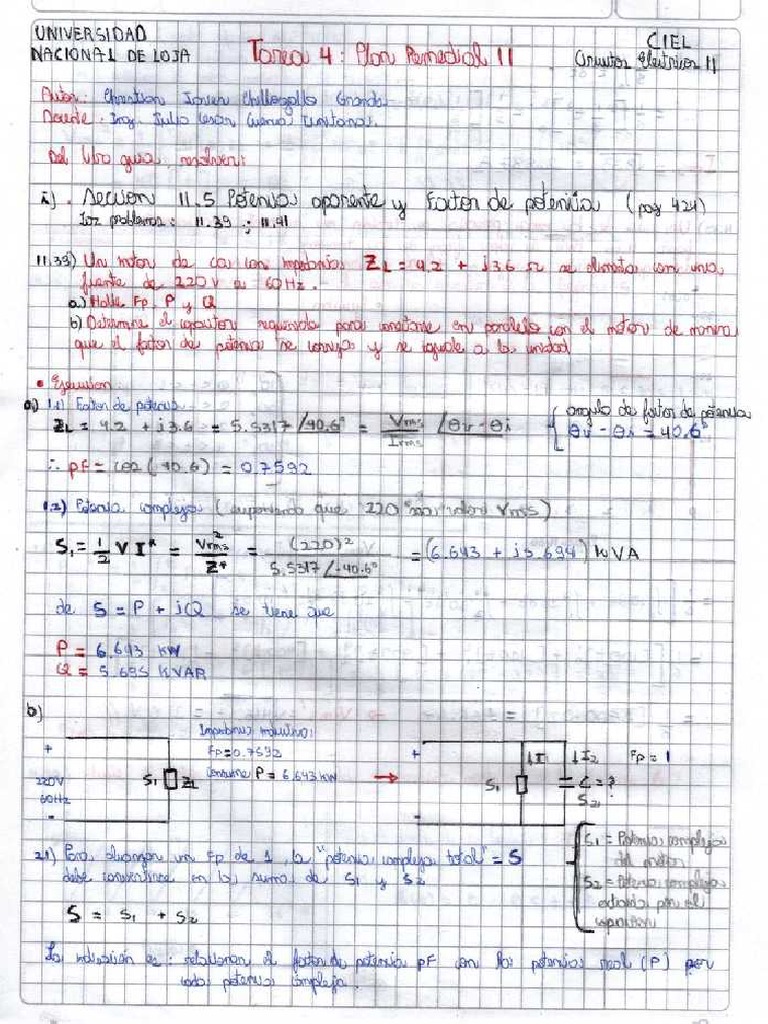 UNIVERSIDAD
NACIONAL DE LOJA
Tarea 4: Plan Remedial II
CIEL
Circuitos Eléctricos II
Autor: Christian Javier Chillogallo Granda
Docente: Ing. Julio César
Del libro guía, resolver:
i) . Sección 11.5 Potencia aparente y Factor de potencia (pag 424)
Los problemas: 11.39 ; 11.41
11.39) Un motor de ca con impedancia ZL = 4.2 + j3.6 Ω se alimenta con una
fuente de 220 V a 60 Hz.
a) Halle Fp, P y Q
b) Determine el capacitor requerido para conectarse en paralelo con el motor de manera
que el factor de potencia se corrija y se iguale a la unidad
• Ejecución
a) 1.1) Factor de potencia
ZL = 4.2 + j3.6 = 5.5317 /40.6° = Vrms / Irms /θv - θi
ángulo de factor de potencia
θv - θi = 40.6°
∴ pF = cos(40.6) = 0.7592
1.2) Potencia compleja (suponiendo que 220 Vrms)
S1 = 1/2 V I* = Vrms² / Z* = (220)² / 5.5317 /-40.6° = (6.643 + j5.694) kVA
de S = P + jQ se tiene que
P = 6.643 KW
Q = 5.695 KVAR
b)
+
220V
60Hz
-
S1
ZL
Impedancia inductiva:
Fp = 0.7592
Consume P = 6.643 kW
→
+
-
S1
↓I
↓I2
C = ?
S2
Fp = 1
2.1) Para alcanzar un Fp de 1, la "potencia compleja total" = S
debe convertirse en la suma de S1 y S2
S = S1 + S2
S1 = Potencia compleja
del motor
S2 = Potencia compleja
por el
capacitor
La relación es: relacionar el factor de potencia pF con las potencias real (P) por
cada potencia compleja.